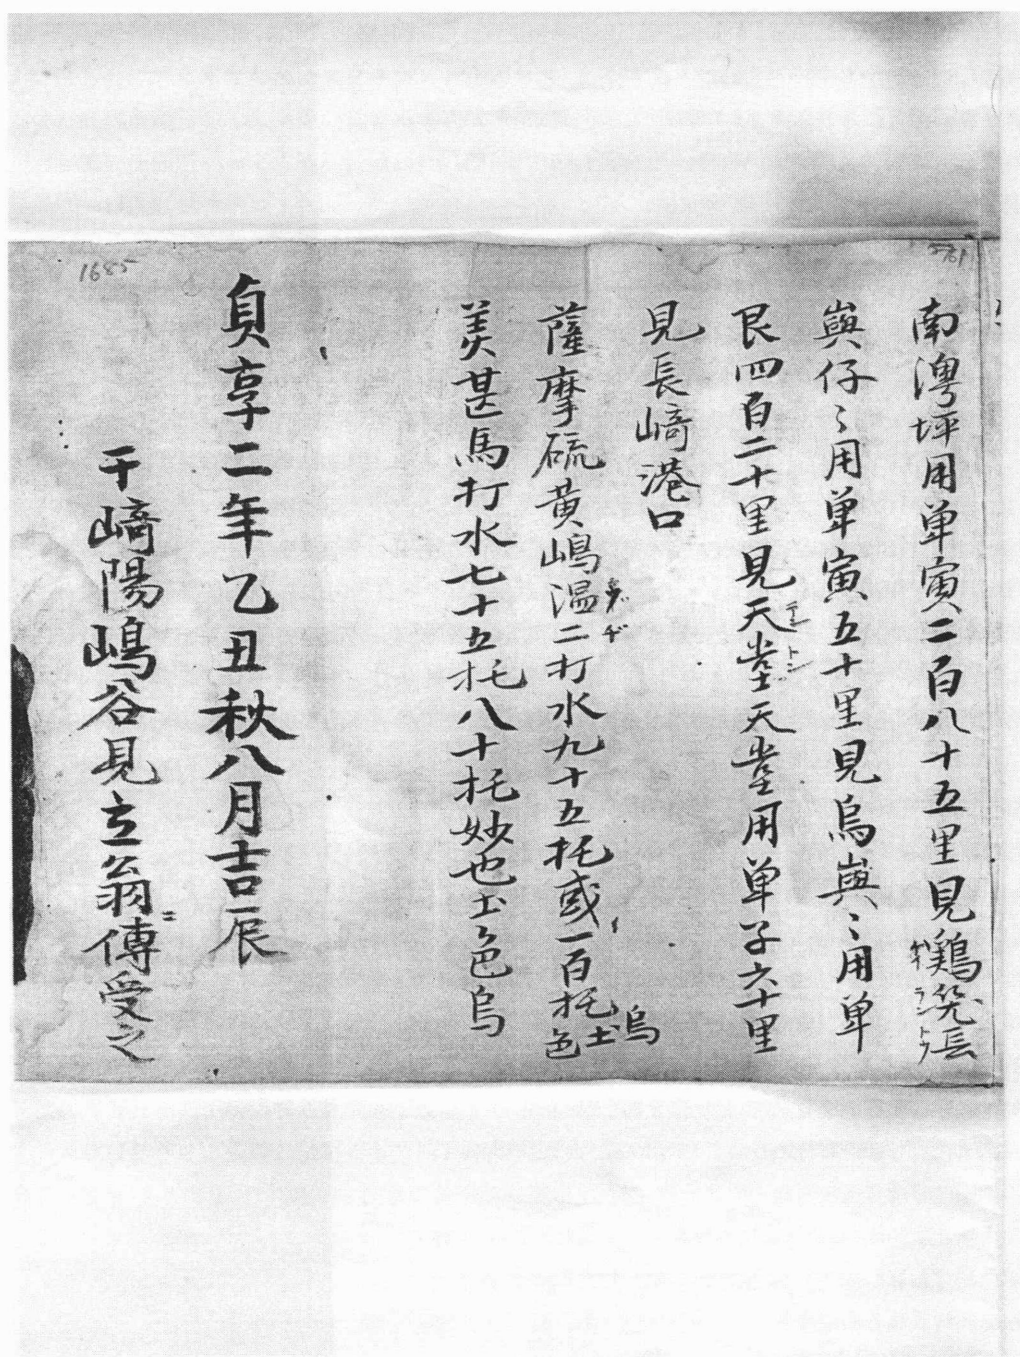 南灣坪用单寅二百八十五里見鶏笼長
嶼仔〻用単寅五十里見烏嶼〻用単
艮四百二十里見天堂天堂用単子六十里
テン
トン
見長﨑港口
薩摩硫黄嶋温二打水九十五托或一百托土色烏
美甚馬打水七十五托八十托妙也土色烏
貞享二年乙丑秋八月吉辰
于﨑陽嶋谷見立翁傳受之
1685